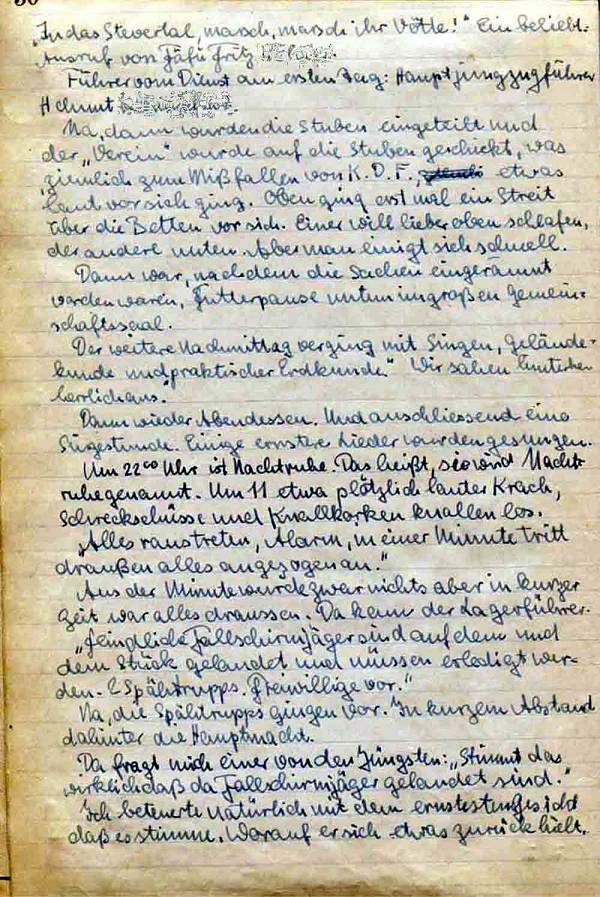 30
„In das Stevertal, marsch, marsch ihr Vötte!“ Ein beliebt.
Ausruf von Fäfü Fritz
Führer vom Dienst am ersten Tag: Hauptjungzugführer
Helmut
Na, dann wurden die Stuben eingeteilt und
der „Verein“ wurde auf die Stuben geschickt, was
ziemlich zum Mißfallen von K.D.F., etwas
laut vor sich ging. Oben ging erst mal ein Streit
über die Betten vor sich. Einer will lieber oben schlafen,
der andere unten. Aber man einigt sich schnell.
Dann war, nachdem die Sachen eingeräumt
worden waren, Futterpause unten im großen Gemein-
schaftssaal.
Der weitere Nachmittag verging mit Singen, Gelände-
kunde und praktischer Erdkunde.“ Wir sahen hinterher
herrlich aus.
Dann wieder Abendessen. Und anschliessend eine
Singestunde. Einige ernstere Lieder wurden gesungen.
Um 22⁰⁰ Uhr ist Nachtruhe. Das heißt, sie wird Nacht-
ruhe genannt. Um 11 etwa plötzlich lauter Krach,
Schreckschüsse und Knallkorken knallen los.
„Alles raustreten, Alarm, in einer Minute tritt
draußen alles angezogen an.“
Aus der Minute wurde zwar nichts aber in kurzer
Zeit war alles draussen. Da kam der Lagerführer.
„Feindliche Fallschirmjäger sind auf dem und
dem Stück gelandet und müssen erledigt wer-
den. 2 Spähtrupps. Freiwillige vor.“
Na, die Spähtrupps gingen vor. In kurzem Abstand
dahinter die Hauptmacht.
Da fragt mich einer von den Jüngsten: „Stimmt das
wirklich daß da Fallschirmjäger gelandet sind.“
Ich beteuerte natürlich mit dem ernstesten Gesicht
daß es stimme. Worauf er sich etwas zurück hielt.